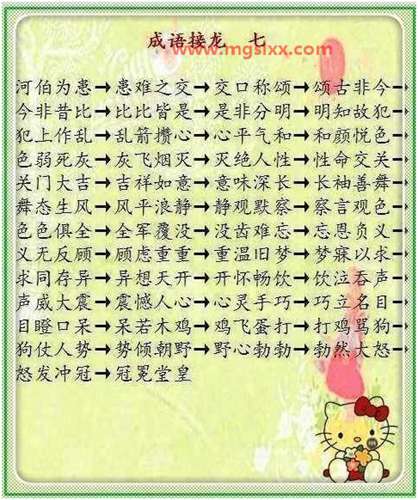 成语接龙 七
www.mgslxx.com
河伯为患→患难之交→交口称颂→颂古非今→
今非昔比→比比皆是→是非分明→明知故犯→
犯上作乱→乱箭攒心→心平气和→和颜悦色→
色弱死灰→灰飞烟灭→灭绝人性→性命交关→
关门大吉→吉祥如意→意味深长→长袖善舞→
舞态生风→风平浪静→静观默察→察言观色→
色色俱全→全军覆没→没齿难忘→忘恩负义→
义无反顾→顾虑重重→重温旧梦→梦寐以求→
求同存异→异想天开→开怀畅饮→饮泣吞声→
声威大震→震憾人心→心灵手巧→巧立名目→
目瞪口呆→呆若木鸡→鸡飞蛋打→打鸡骂狗→
狗仗人势→势倾朝野→野心勃勃→勃然大怒→
怒发冲冠→冠冕堂皇